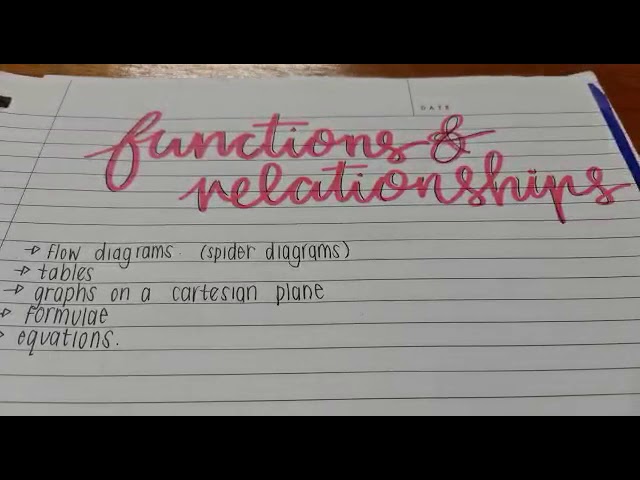 DATE
functions &
relationships
→ flow diagrams. (spider diagrams)
→ tables
→ graphs on a cartesian plane
→ formulae
→ equations.